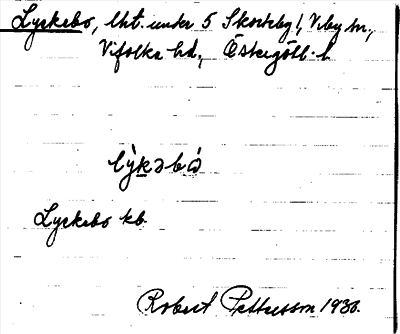 Lyckebo, lht. under 5 Skorteby!, Viby sn,
Vifolka hd, Östergötl. l
ly̆̀kəbó
Lyckebo kb.
Robert Pettersson 1930.